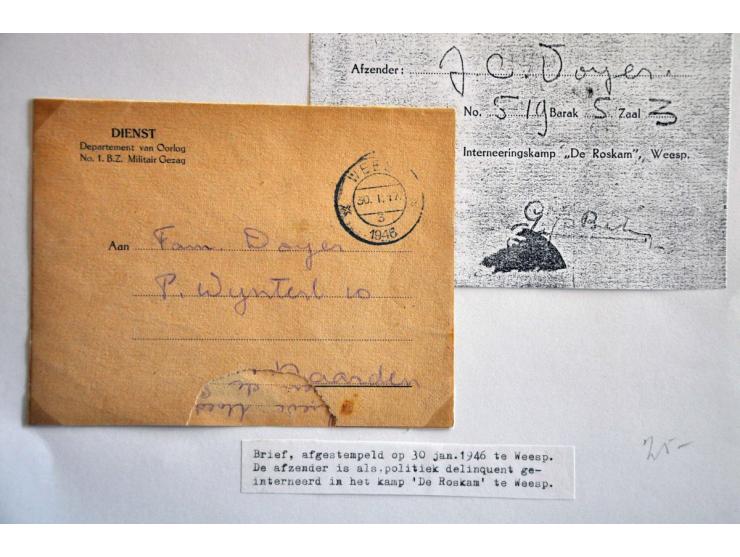 Afzender: J C. Doyer.
No. 519 Barak 5 Zaal 3
Interneeringskamp „De Roskam", Weesp.
DIENST
Departement van Oorlog
No. 1. B.Z. Militair Gezag
30. 1. 17.
3
1946
Aan Fam. Doyer
P. Wynterl 10
Naarden
25-
Brief, afgestempeld op 30 jan.1946 te Weesp.
De afzender is als.politiek delinquent ge-
interneerd in het kamp 'De Roskam' te Weesp.